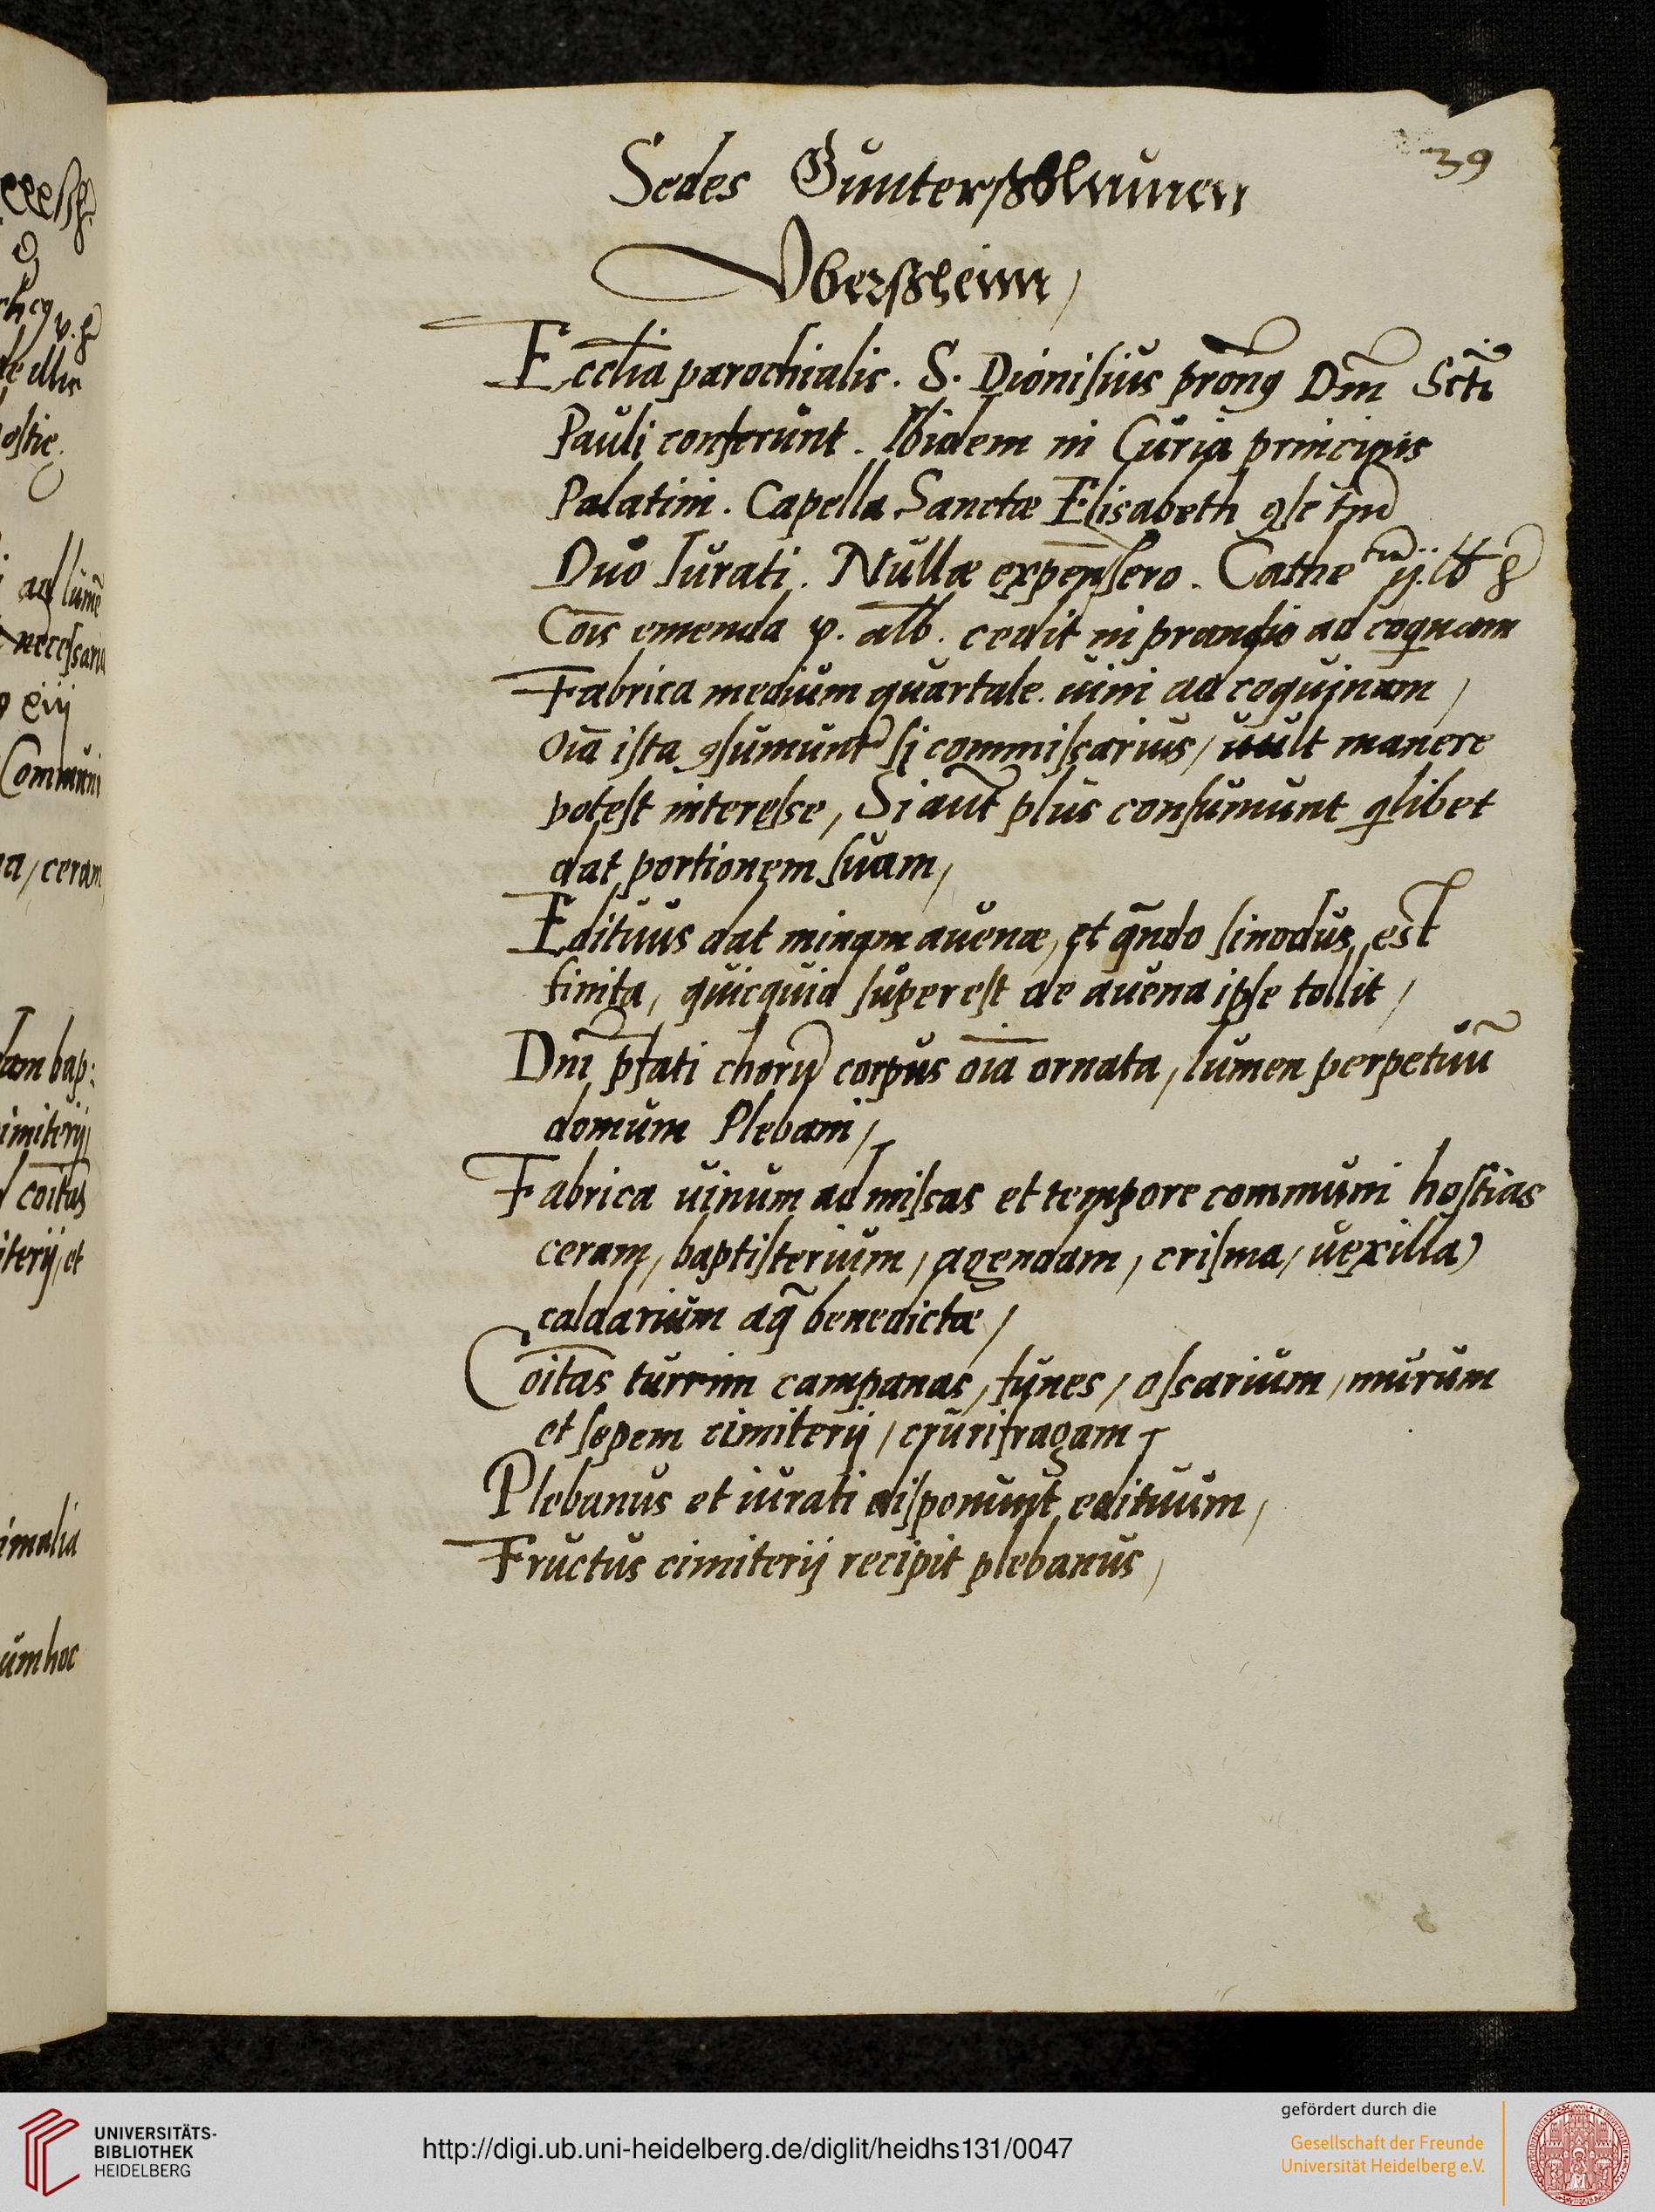 39
Sedes Guntersßblumen
Vberßheim,
Ecclīa parochialis. S. Dionisius pronꝯ Dm̄ Sctī
Pauli conferunt. Ibidem in Curia principis
Palatini. Capella Sanctæ Elisabeth
Duo Iurati. Nullæ expensero. Cathe ij. lb
Cōis emenda v. alb. cedit in prandio ad coquinam
Fabrica medium quartale uini ad coquinam,
Oīa ista ꝯsumunt si commissarius, uult manere
potest interesse, Si aut plus consumunt qlibet
dat portionem suam,
Edituus dat minam auenæ, et qn̄do sinodus est
finita, quicquid superest de auena ipse tollit,
Dnī p̄fati chorū corpus oīa ornata, lumen perpetuū
domum Plebani,
Fabrica uinum ad missas et tempore communi hostias
ceram, baptisterium, agendam, crisma, uexilla,
caldarium aq̄ benedictæ,
Coītas turrim campanas, funes, ossarium, murum
et sepem cimiterij, crurifragam,
Plebanus et iurati disponunt edituum,
Fructus cimiterij recipit plebanus,
ad lumē
necessaria
xiij
Communi
a, ceram
dam bap:
imiterij
coītas
iterij, et
imalia
um hoc
UNIVERSITÄTS-
BIBLIOTHEK
HEIDELBERG
http://digi.ub.uni-heidelberg.de/diglit/heidhs131/0047
gefördert durch die
Gesellschaft der Freunde
Universität Heidelberg e.V.